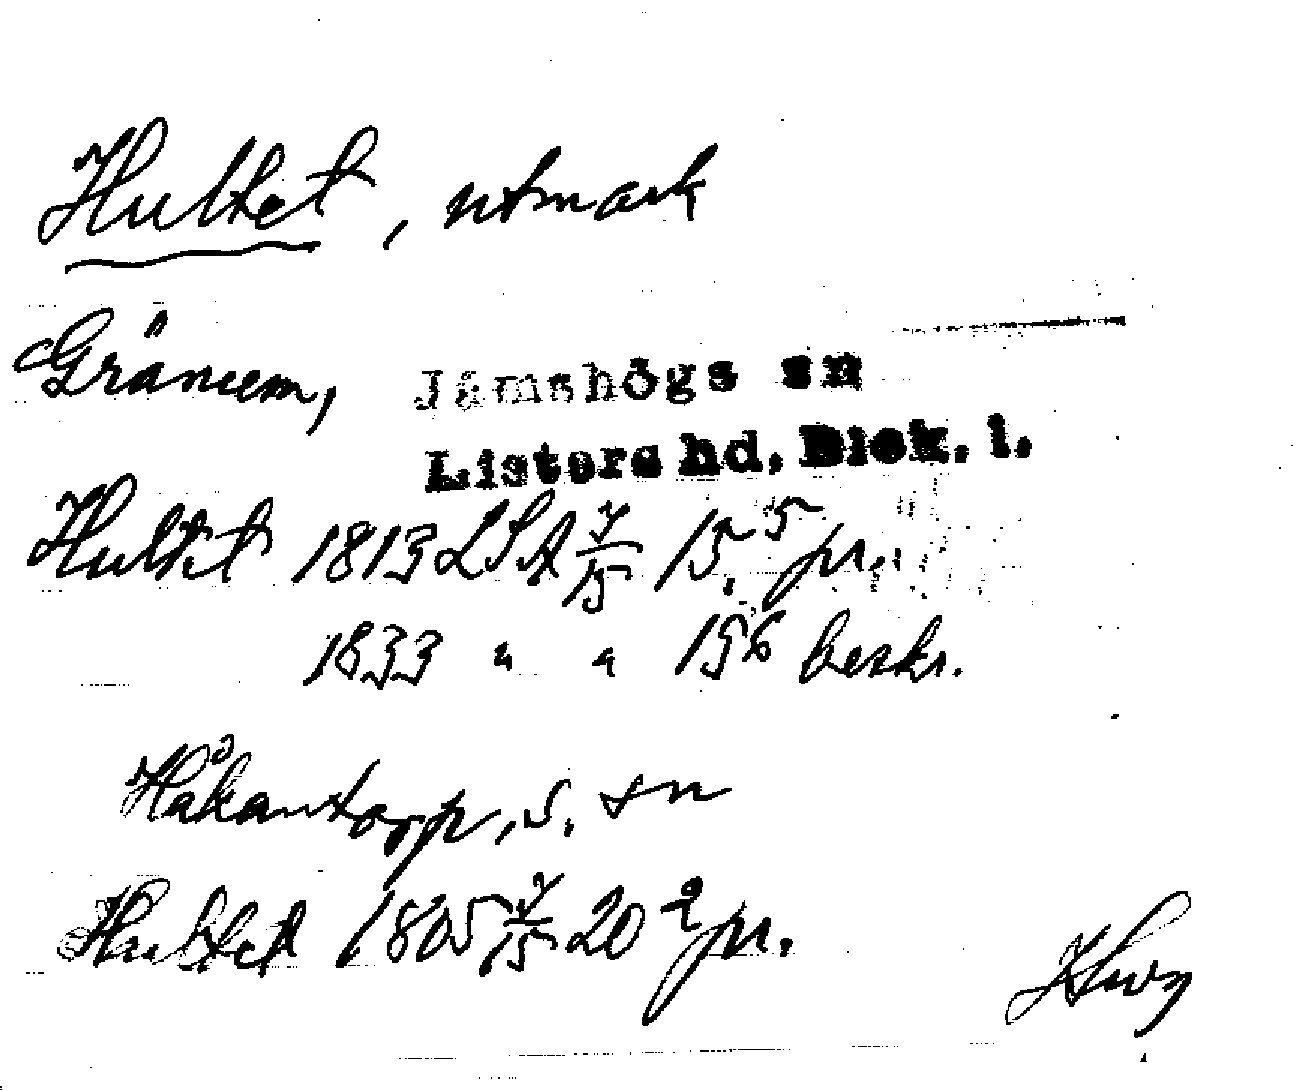 Hultet, utmark
Gränum, Jämshögs sn
Listers hd, Blek. l.
Hultet 1813 LSA 7/15 15.5 pr.
1833 " " 15.6 beskr.
Håkantorp, s. sn
Hultet 1805 7/15 20 9 pr.